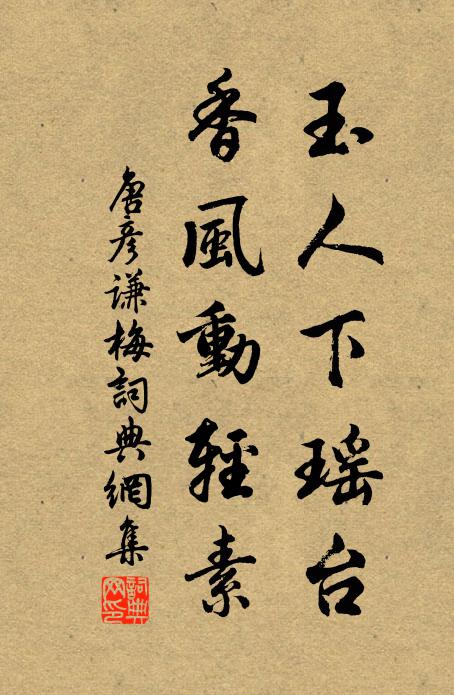 玉人下瑶台
香風動輕素
唐彥謙梅詞典網集
詞典
网印